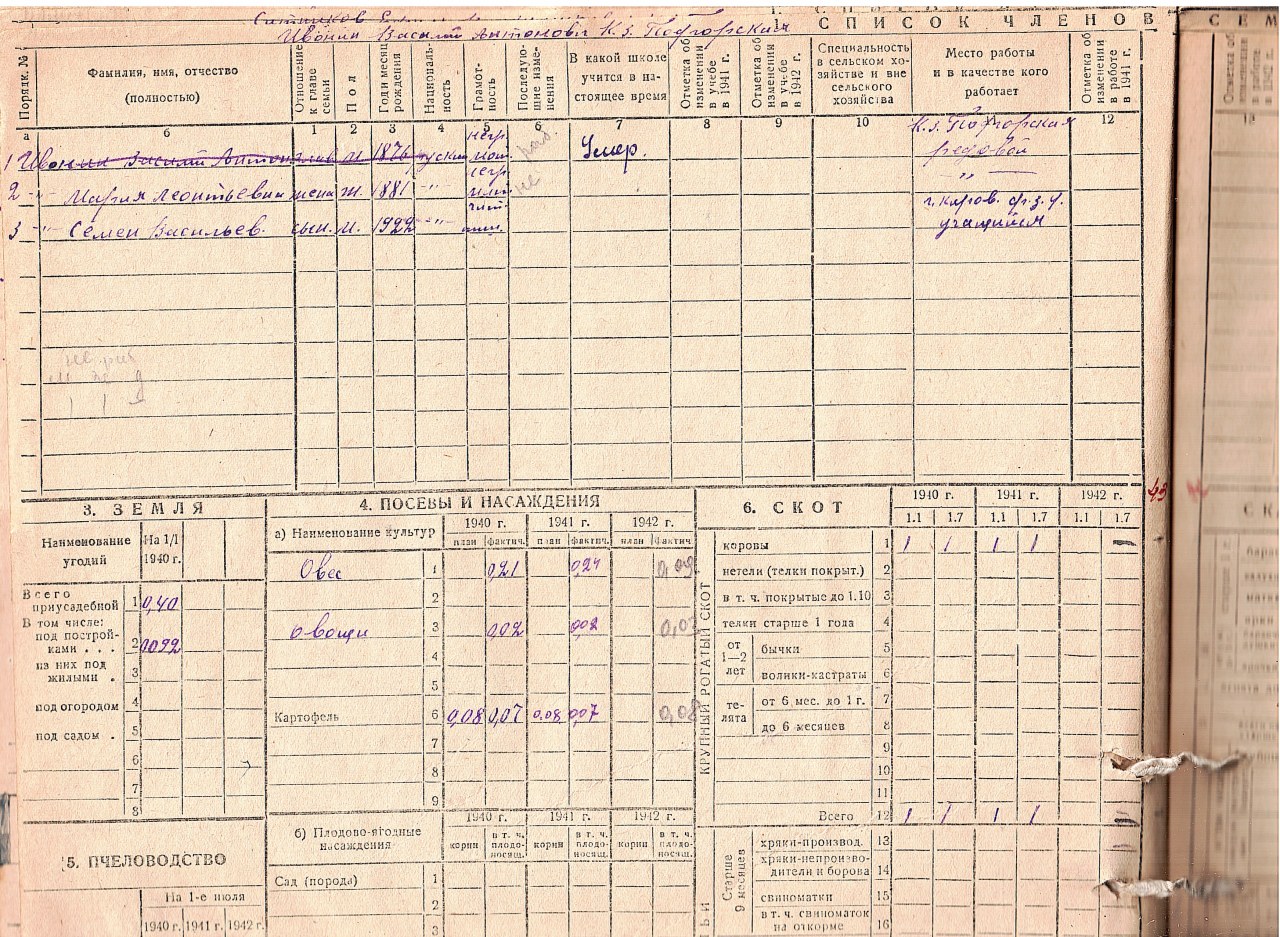 Ситников
Ивонин Василий Антонович К. з. Подгорская
1. СПИСОК ЧЛЕНОВ
СЕМ
Порядк. №
Фамилия, имя, отчество
(полностью)
Отношение к главе семьи
Пол
Год и месяц рождения
Националь-
ность
Грамот-
ность
Последую-
щие изме-
нения
В какой школе
учится в на-
стоящее время
Отметка об изменении в учебе в 1941 г.
Отметка об изменении в учебе в 1942 г.
Специальность
в сельском хо-
зяйстве и вне
сельского
хозяйства
Место работы
и в качестве кого
работает
Отметка об изменении в работе в 1941 г.
а б 1 2 3 4 5 6 7 8 9 10 11 12 13
1 Ивонин Василий Антон глав м. 1876 руский негр. Умер. К. з. Подгорская
рядовой
2 -"- Мария Леонтьевна жена ж. 1881 -"- негр. не раб. -"-
3 -"- Семен Васильев. сын. м. 1922 -"- г. Киров. ф.з.у.
учащийся
не раб
м ж д
1 1
3. ЗЕМЛЯ
Наименование
угодий
На 1/I
1940 г.
Всего
приусадебной 1 0,40
В том числе:
под построй-
ками . . . 2 0092
из них под
жилыми . 3
под огородом 4
под садом . 5
6
7
8
5. ПЧЕЛОВОДСТВО
На 1-е июля
1940 г. 1941 г. 1942 г.
4. ПОСЕВЫ И НАСАЖДЕНИЯ
а) Наименование культур
1940 г. 1941 г. 1942 г.
план фактич. план фактич. план фактич
Овес 1 0,21 0,21 0,09
2
Овощи 3 0,02 0,02 0,03
4
5
Картофель 6 0,08 0,07 0,08 0,07 0,08
7
8
9
б) Плодово-ягодные
насаждения
1940 г. 1941 г. 1942 г.
корни в т. ч. плодо-носящ. корни в т. ч. плодо-носящ. корни в т. ч. плодо-носящ.
Сад (порода) 1
2
3
6. СКОТ
1940 г. 1941 г. 1942 г.
1.1 1.7 1.1 1.7 1.1 1.7
43
КРУПНЫЙ РОГАТЫЙ СКОТ
коровы 1 1 1 1 1 —
нетели (телки покрыт.) 2
в т. ч. покрытые до 1.10 3
телки старше 1 года 4
от
1—2
лет
бычки 5
волики-кастраты 6
те-
лята
от 6 мес. до 1 г. 7
до 6 месяцев 8
9
10
11
Всего 12 1 1 1 1 —
Старше
9 месяцев
хряки-производ. 13
хряки-непроизво-
дители и борова 14
свиноматки 15
в т. ч. свиноматок
на откорме 16